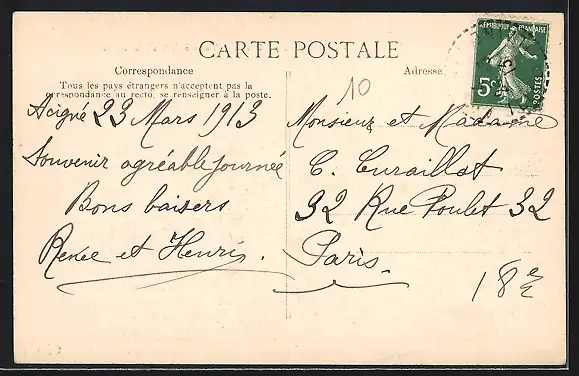 CARTE POSTALE
Correspondance
Tous les pays étrangers n'acceptent pas la
correspondance au recto, se renseigner à la poste.
Adresse
10
RÉPUBLIQUE FRANÇAISE
5c
POSTES
Acigné 23 Mars 1913
Souvenir agréable journée
Bons baisers
Renée et Henri.
Monsieur et Madame
C. Curaillat
32 Rue Poulet 32
Paris.
18e